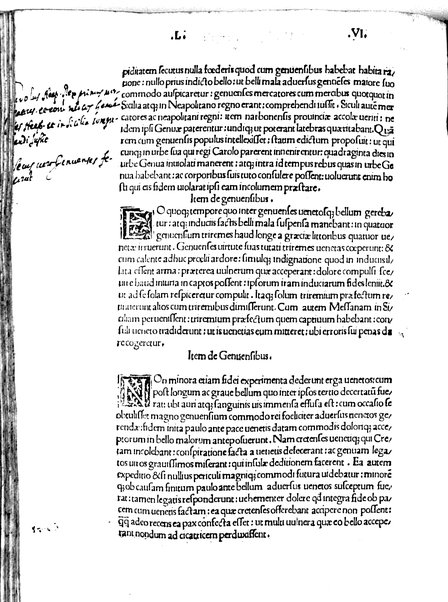 .L. .VI.
piditatem secutus nulla fœderis quod cum genuensibus habebat habita ra
tione: nullo prius indicto bello: ut belli mala aduersus genuẽses maiore suo
commodo auspicaretur: genuenses mercatores cum mercibus quotquot in
Sicilia atq; in Neapolitano regno erant: comprehendi iussit. Siculi autẽ mer
catores ac neapolitani regni: item narbonensis prouinciæ accolæ ueriti: ne
idem ipsi Genuæ paterentur: undiq; ut poterant latebras quæritabant. Quã
rem cum genuensis populus intellexisset: statim edictum proposuit: ut qui
cunq; in urbe sua qui regi Carolo parerent inuenirentur: quadraginta dies in
urbe Genua inuiolati manerent: atq; intra id tempus rebus quas in urbe Ge
nua habebant: ac corporibus suis tuto consulere possent: uoluerunt enim ho
sti qui eis fidem uiolarat ipsi eam incolumem præstare.
Item de genuensibus.
EO quoq; tempore quo inter genuenses uenetosq; bellum gereba
tur: atq; inducijs factis belli mala suspensa manebant: in quatuor
genuensium triremes haud longe a græcis littoribus quatuor ue
netæ irruerunt. Genuenses uirtute sua tutati triremes uenetas coeperunt: &
cum calente adhuc prœlii ardore: simulq; indignatione quod in induciis il
lata essent arma: præterea uulnerum quæ acceperant: dolore compulsi sæ
uire haud iniuria in captos possent: ipsorum iram induciarum fides leniit: &
ut ad se solam respicerent compulit. Itaq; solum triremium præfectum re
tinuerunt alios cum triremibus dimisserunt. Cum autem Messanam in Si
ciliam peruenissent: triremium præfectum quem captiuum habebant: con
suli ueneto tradiderunt: ut is uenetias eum mitteret; ubi erroris sui pœnas da
recogeretur.
Item de Genuensibus.
NOn minora etiam fidei experimenta dederunt erga uenetos: cum
post longum ac graue bellum quo inter ipsos tertio decertatũ fue
rat: ubi auri atq; sanguinis uis immensa effusa est: cum occasio se
obtulisset magno genuensium commodo rei foeliciter aduersus uenetos ge
rendæ: fidem inita paulo ante pace uenetis datam commodis doloriq; acce
ptorum in bello malorum anteposuerunt. Nam cretenses uenetiq; qui Cre
tam incolebant: conspiratione facta a uenetis defecerant: ac genuam lega
tos uiros grauissimos miserant: qui insulæ deditionem facerent. Ea autem
expeditio & si nullius periculi magniq; commodi futura uidebatur: minorẽ
q; ob causam finitum paulo ante bellum aduersus uenetos susceptum fue
rat: tamen legatis responderunt: uehementer dolere qđ integra fide ob pa
cem cum uenetis factam: ea quæ cretenses offerebant accipere non possent:
q̃q̃ adeo recens ea pax confecta esset: ut multi uulnera quæ eo bello accepe
rant nondum ad cicatricem perduxissent.